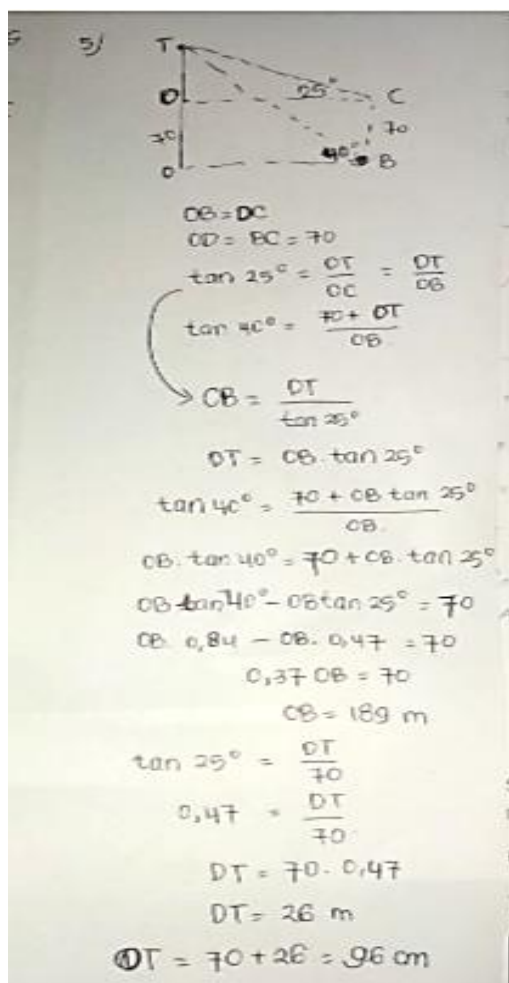 5)
T
D
25°
C
70
70
40°
B
O
OB = DC
OD = BC = 70
tan 25° = DT/DC = DT/OB
tan 40° = 70 + DT/OB
OB = DT/tan 25°
DT = OB. tan 25°
tan 40° = 70 + OB tan 25°/OB.
OB. tan 40° = 70 + OB. tan 25°
OB tan 40° - OB tan 25° = 70
OB. 0,84 - OB. 0,47 = 70
0,37 OB = 70
OB = 189 m
tan 25° = DT/70
0,47 = DT/70
DT = 70. 0,47
DT = 26 m
OT = 70 + 26 = 96 cm